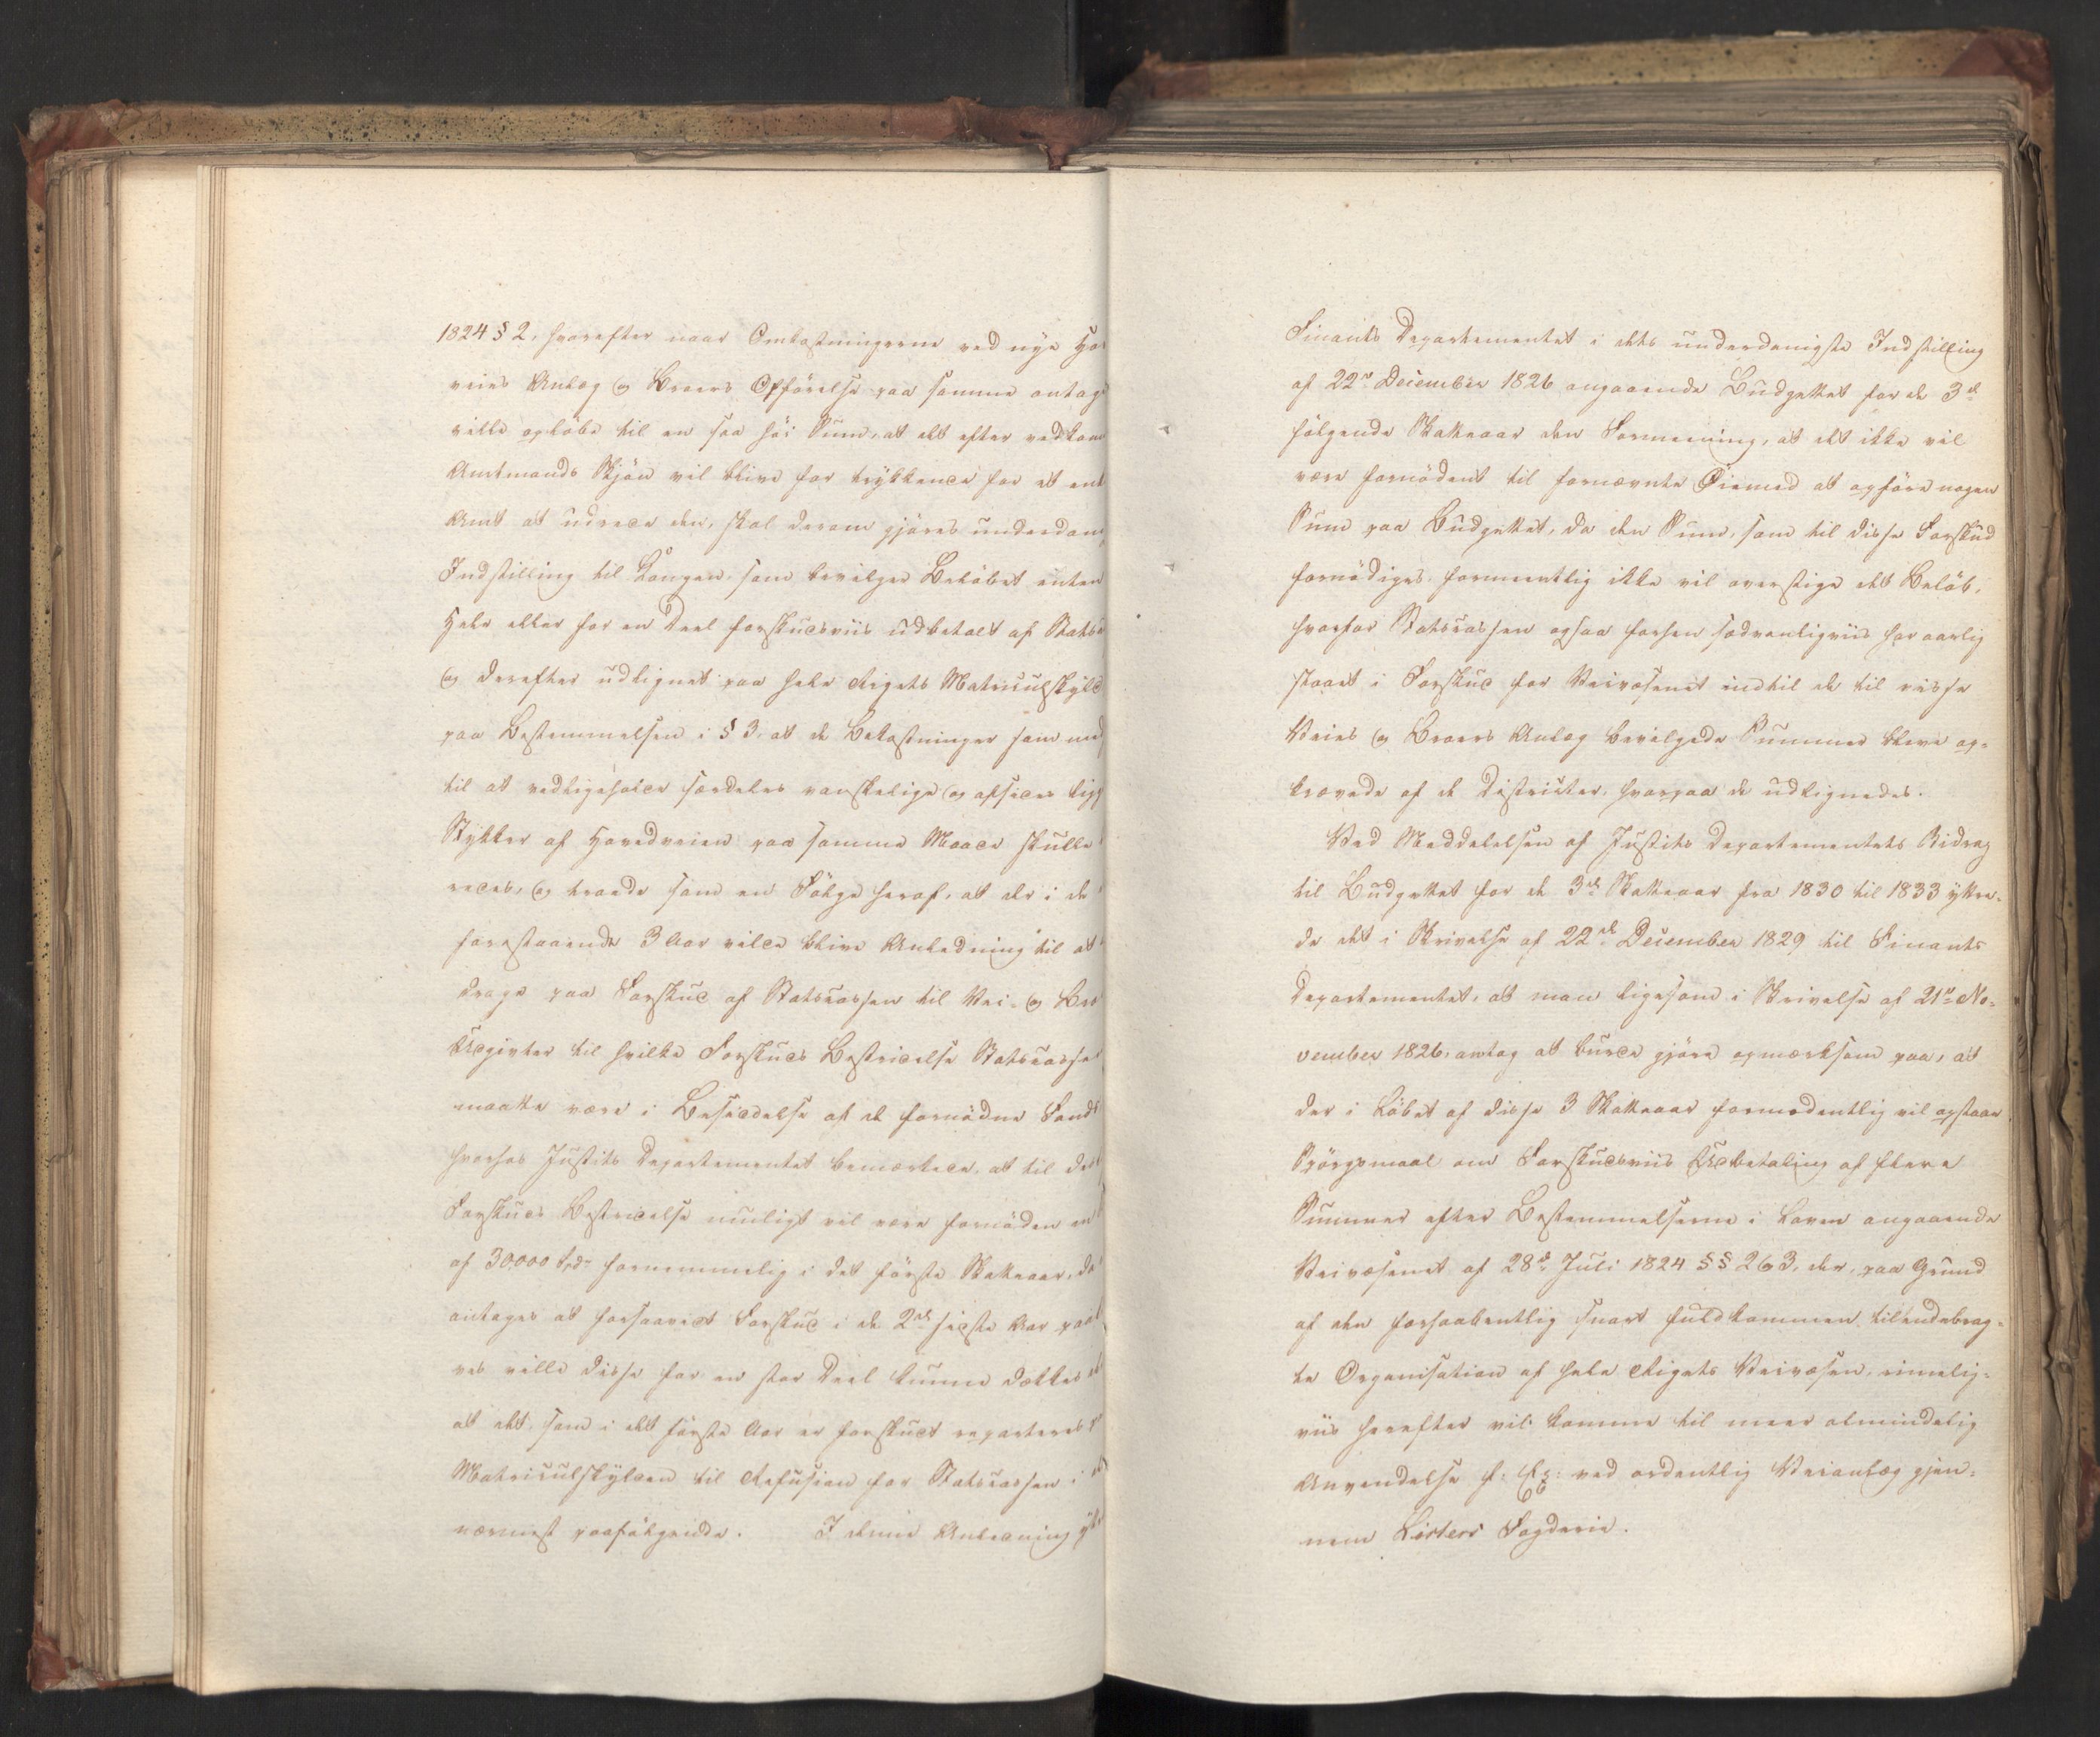 1824 § 2, hvorefter naar Omkostningerne ved nye Ho
veies Anlæg og Broers Opförelse paa samme antag
ville oplöbe til en saa höi Sum, at det efter vedkom
Amtmands Skjön vil blive for trykkende for et enk
Amt at udrede den, skal derom gjöres underdan
Indstilling til Kongen, som bevilger Belöbet enten
Hele eller for en Deel forskudsviis udbetalt af Stats
og derefter udlignet paa hele Rigets Matriculskyld
paa Bestemmelsen i § 3, at de Bekostninger som med
til at vedligeholde særdeles vanskelige og afsides ligg
Stykker af Hovedveien paa samme Maade skulle
redes, og troede som en Fölge heraf, at der i de
forestaaende 3 Aar vilde blive Anledning til at
drage paa Forskud af Statscassen til Vei- og Bro
Udgivter til hvilke Forskuds Bestridelse Statscasse
maatte være i Besiddelse af de fornödne Fonds
hvorhos Justits Departementet bemærkede, at til de
Forskuds Bestridelse muligt vil være fornöden en
af 30,000 Spd fornemmelig i det förste Skatteaar, da
antages at forsaavidt Forskud i de 2de sidste Aar paa
ves ville disse for en stor Deel kunne dækkes
at det, som i det förste Aar er forskudt reparteres
Matriculskylden til Refusion for Statscassen i
nærmest paafölgende. I denne Anledning ytt
Finants Departementet i dets underdanigste Indstilling
af 22de December 1826 angaaende Budgettet for de 3de
fölgende Skatteaar den Formening, at det ikke vil
være fornödent til fornævnte Öiemed at opföre nogen
Sum paa Budgettet, da den Sum, som til disse Forskud
fornödiges, formeentlig ikke vil overstige det Belöb,
hvorfor Statscassen ogsaa forhen sædvanligviis har aarlig
staaet i Forskud for Veivæsenet indtil de til visse
Veies og Broers Anlæg bevilgede Summer bleve op-
krævede af de Districter, hvorpaa de udlignedes.
Ved Meddelelsen af Justits Departementets Bidrag
til Budgettet for de 3de Skatteaar fra 1830 til 1833 yttre-
de det i Skrivelse af 22de December 1829 til Finants
Departementet, at man ligesom i Skrivelse af 21de No-
vember 1826, antog at burde gjöre opmærksom paa, at
der i Löbet af disse 3 Skatteaar formodentlig vil opstaae
Spörgsmaal om Forskudsviis Udbetaling af flere
Summer efter Bestemmelserne i Loven angaaende
Veivæsenet af 28de Juli 1824 §§ 2 og 3, der, paa Grund
af den forhaabentlig snart fuldkommen tilendebrag-
te Organisation af hele Rigets Veivæsen, rimelig-
viis herefter vil komme til meer almindelig
Anvendelse f: Ex: ved ordentlig Veianlæg gjen-
nem Listers Fogderie.